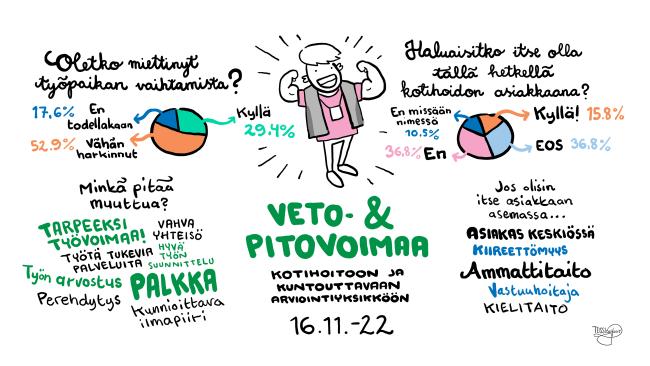 Oletko miettinyt
työpaikan vaihtamista?
17.6% En
todellakaan
Kyllä
29.4%
52.9% Vähän
harkinnut
Haluaisitko itse olla
tällä hetkellä
kotihoidon asiakkaana?
En missään
nimessä
10.5%
Kyllä! 15.8%
36.8% En
EOS 36.8%
Minkä pitää
muuttua?
TARPEEKSI
TYÖVOIMAA!
VAHVA
YHTEISÖ
TYÖTÄ TUKEVIA
PALVELUITA
HYVÄ
TYÖN
SUUNNITTELU
Työn arvostus
PALKKA
Perehdytys
Kunnioittava
ilmapiiri
VETO- &
PITOVOIMAA
KOTIHOITOON JA
KUNTOUTTAVAAN
ARVIOINTIYKSIKKÖÖN
16.11.-22
Jos olisin
itse asiakkaan
asemassa...
ASIAKAS KESKIÖSSÄ
KIIREETTÖMYYS
Ammattitaito
Vastuuhoitaja
KIELITAITO